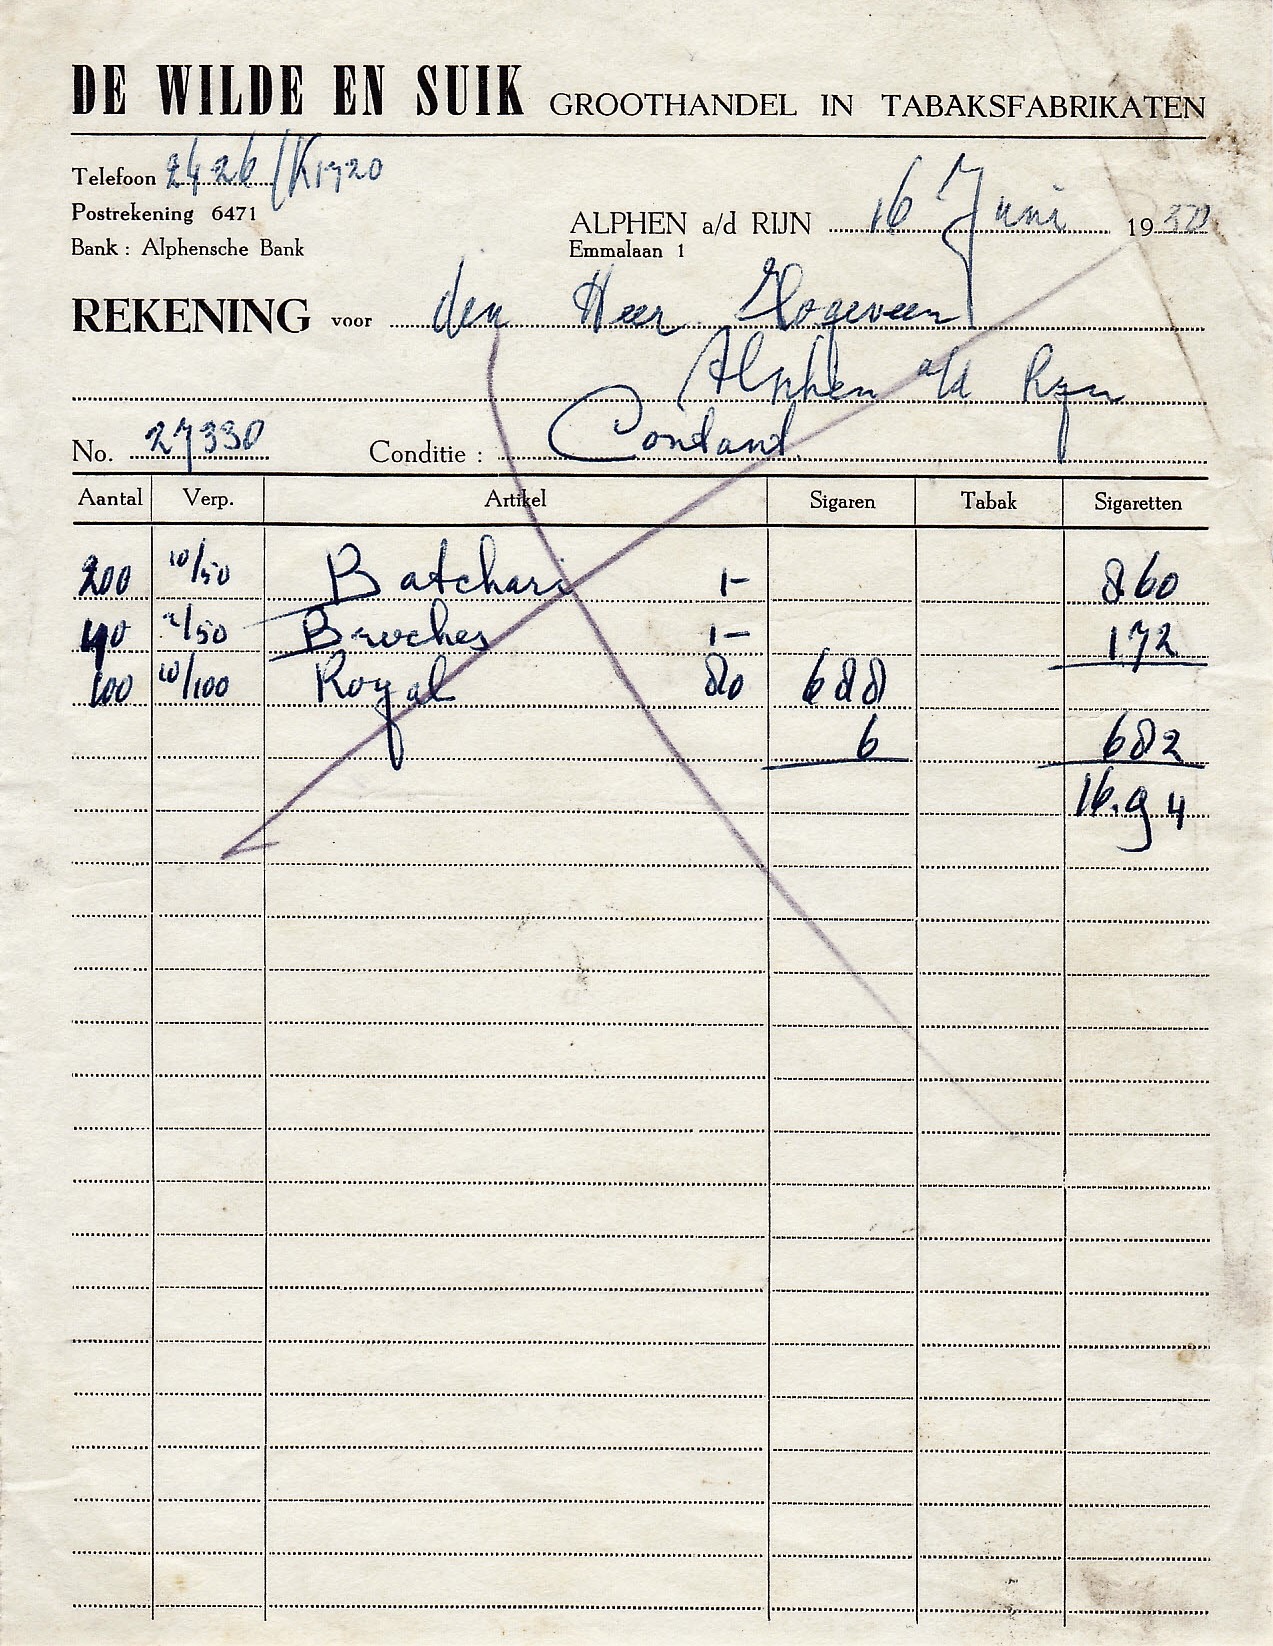 DE WILDE EN SUIK GROOTHANDEL IN TABAKSFABRIKATEN
Telefoon 2426/K1720
Postrekening 6471
Bank : Alphensche Bank
ALPHEN a/d RIJN 16 Juni 1950
Emmalaan 1
REKENING voor den Heer Hogeveen
Alphen a/d Rijn
No. 27330 Conditie : Contant
Aantal Verp. Artikel Sigaren Tabak Sigaretten
200 10/50 Batchari 1- 860
40 2/50 1- 172
100 10/100 Royal 80 688
6 682
16.94